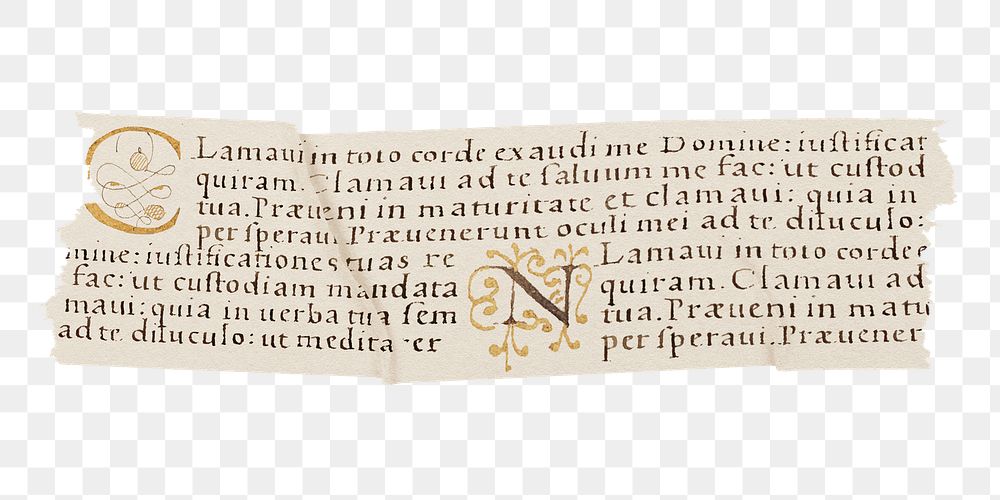 C Lamaui in toto corde exaudi me Domine: iuſtificat
quiram. Clamaui ad te ſaluum me fac: ut cuſtod
tua. Præueni in maturitate et clamaui: quia in
per ſperaui. Præuenerunt oculi mei ad te diluculo:
mine: iuſtificationes tuas re
fac: ut cuſtodiam mandata
maui: quia in uerba tua ſem
ad te diluculo: ut medita er
N Lamaui in toto corde e
quiram. Clamaui ad
tua. Præueni in matu
per ſperaui. Præuener